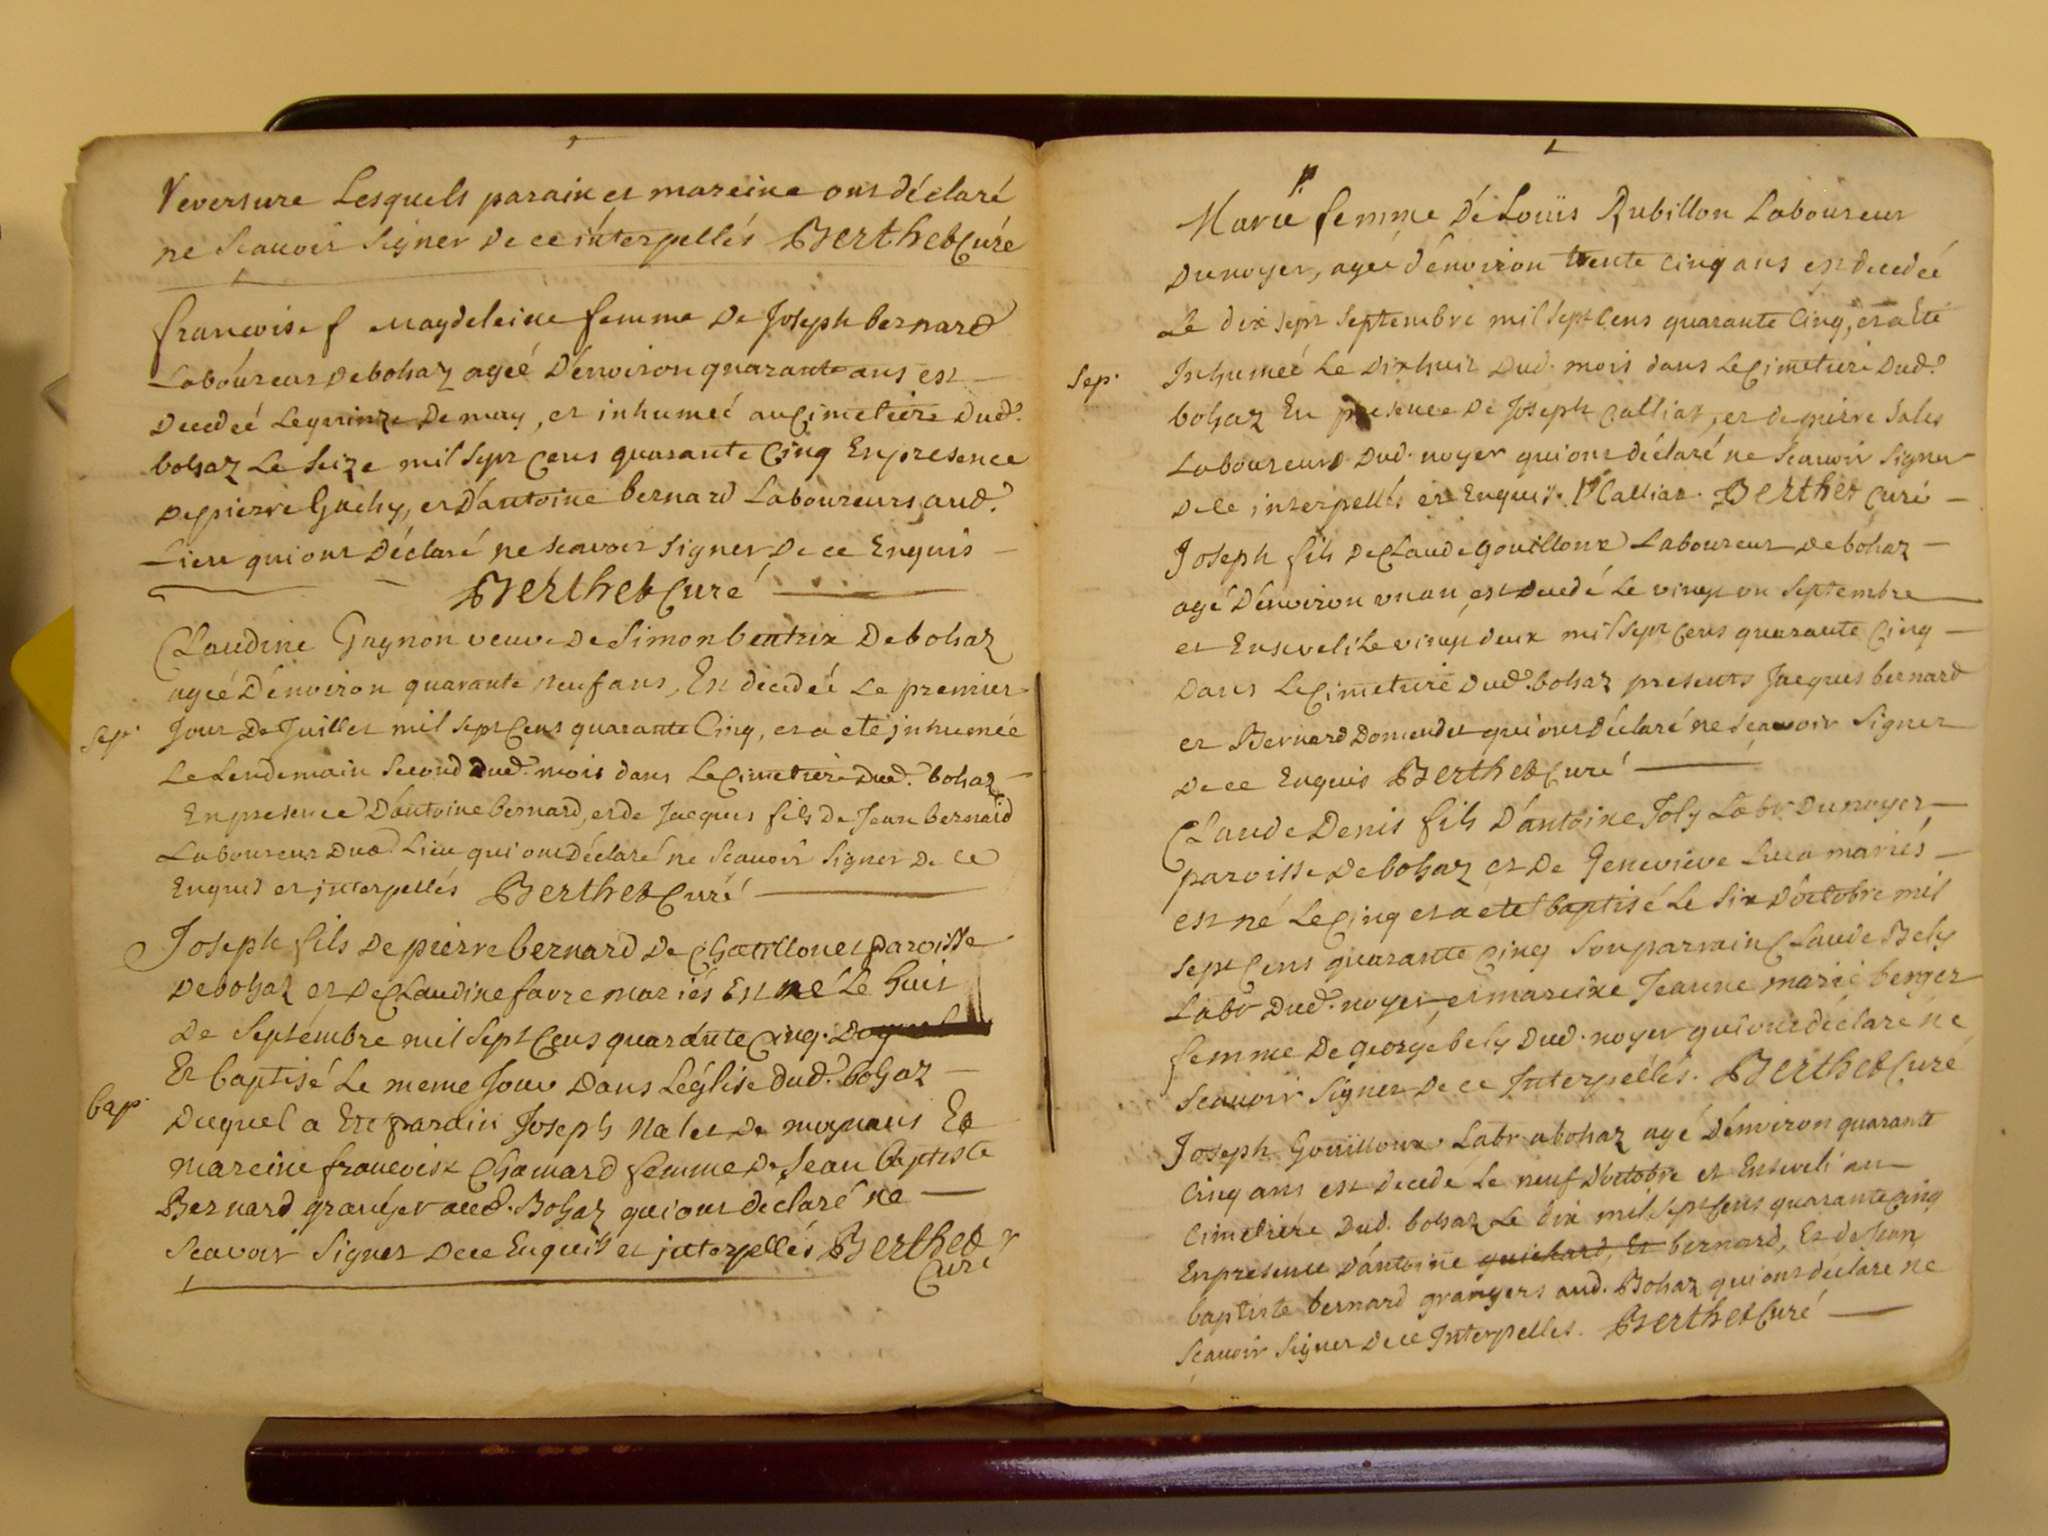 Reversure Lesquels parain et mareine ont déclaré
ne Scauoir Signer De ce interpellés Berthet Curé
francoise f Magdeleine femme De Joseph bernard
Laboureur De bohaz ageé D'enuiron quarante ans est
Decedeé Le quinze De may, et inhumeé au Cimetiere Dud.
bohaz Le Seize mil Sept Cens quarante Cinq En presence
De pierre Guchy, et D'antoine bernard Laboureurs aud.
Lieu qui ont Déclaré ne Scavoir Signer De ce Enquis
Berthet Curé
Claudine Gagnon veuve De Simon beatrix De bohaz
ageé D'enuiron quarante neuf ans, Est decedeé Le premier
Sep. Jour De Juillet mil Sept Cens quarante Cinq, et a eté inhumée
Le Lendemain Second Dud. mois dans Le Cimetiere Dud. bohaz
En presence D'antoine bernard, et de Jacques fils de Jean bernard
Laboureur Dud Lieu qui ont Déclaré ne Scauoir Signer De ce
Enquis et interpellés Berthet Curé
Joseph fils De pierre bernard De Chatillonet paroisse
De bohaz et De Claudine favre mariés Est né Le huit
De Septembre mil Sept Cens quarante Cinq.
Et baptisé Le meme Jour Dans L'église dud. bohaz
bap. Duquel a Eté parain Joseph Nalet De mugnans Et
mareine francoise Chamard femme De Jean baptiste
Bernard granger aud. Bohaz qui ont déclaré ne
Scavoir Signer De ce Enquis et interpellés Berthet
Curé
Marie femme De Louis Rubillon Laboureur
Du noyer, ageé d'enuiron trente cinq ans est decedeé
Le dix sept Septembre mil Sept Cens quarante Cinq, et a eté
Sep. Inhumeé Le Dixhuit Dud. mois dans Le Cimetiere Dud.
bohaz En presence De Joseph Calliat, et de pierre Sales
Laboureurs Dud. noyer qui ont déclaré ne Scauoir Signer
De ce interpellés et Enquis. Calliat. Berthet Curé
Joseph fils De Claude Gouilloux Laboureur De bohaz
agé D'enuiron un an, est Decedé Le vingt un Septembre
et Enseveli Le vingt deux mil Sept Cens quarante Cinq
Dans Le Cimetiere Dud. bohaz presents Jacques bernard
et Bernard Domendet qui ont Déclaré ne Scauoir Signer
De ce Enquis Berthet Curé
Claude Denis fils D'antoine Joly Labr Du noyer
paroisse De bohaz et De Geneviève mariés
est né Le Cinq et a eté baptisé Le Six D'octobre mil
Sept Cens quarante Cinq Son parrain Claude Bely
Labr Dud. noyer, et mareine Jeanne marie berger
femme De George bely Dud. noyer qui ont déclaré ne
Scauoir Signer De ce Interpellés. Berthet Curé
Joseph Gouilloux Labr a bohaz agé D'enuiron quarante
Cinq ans est Decedé Le neuf D'octobre et Enseveli au
Cimetiere Dud. bohaz Le dix mil Sept Cens quarante Cinq
En presence D'antoine guichard, Et bernard, Et de Jean
baptiste bernard grangers aud. Bohaz qui ont déclaré ne
Scauoir Signer De ce Interpelles. Berthet Curé